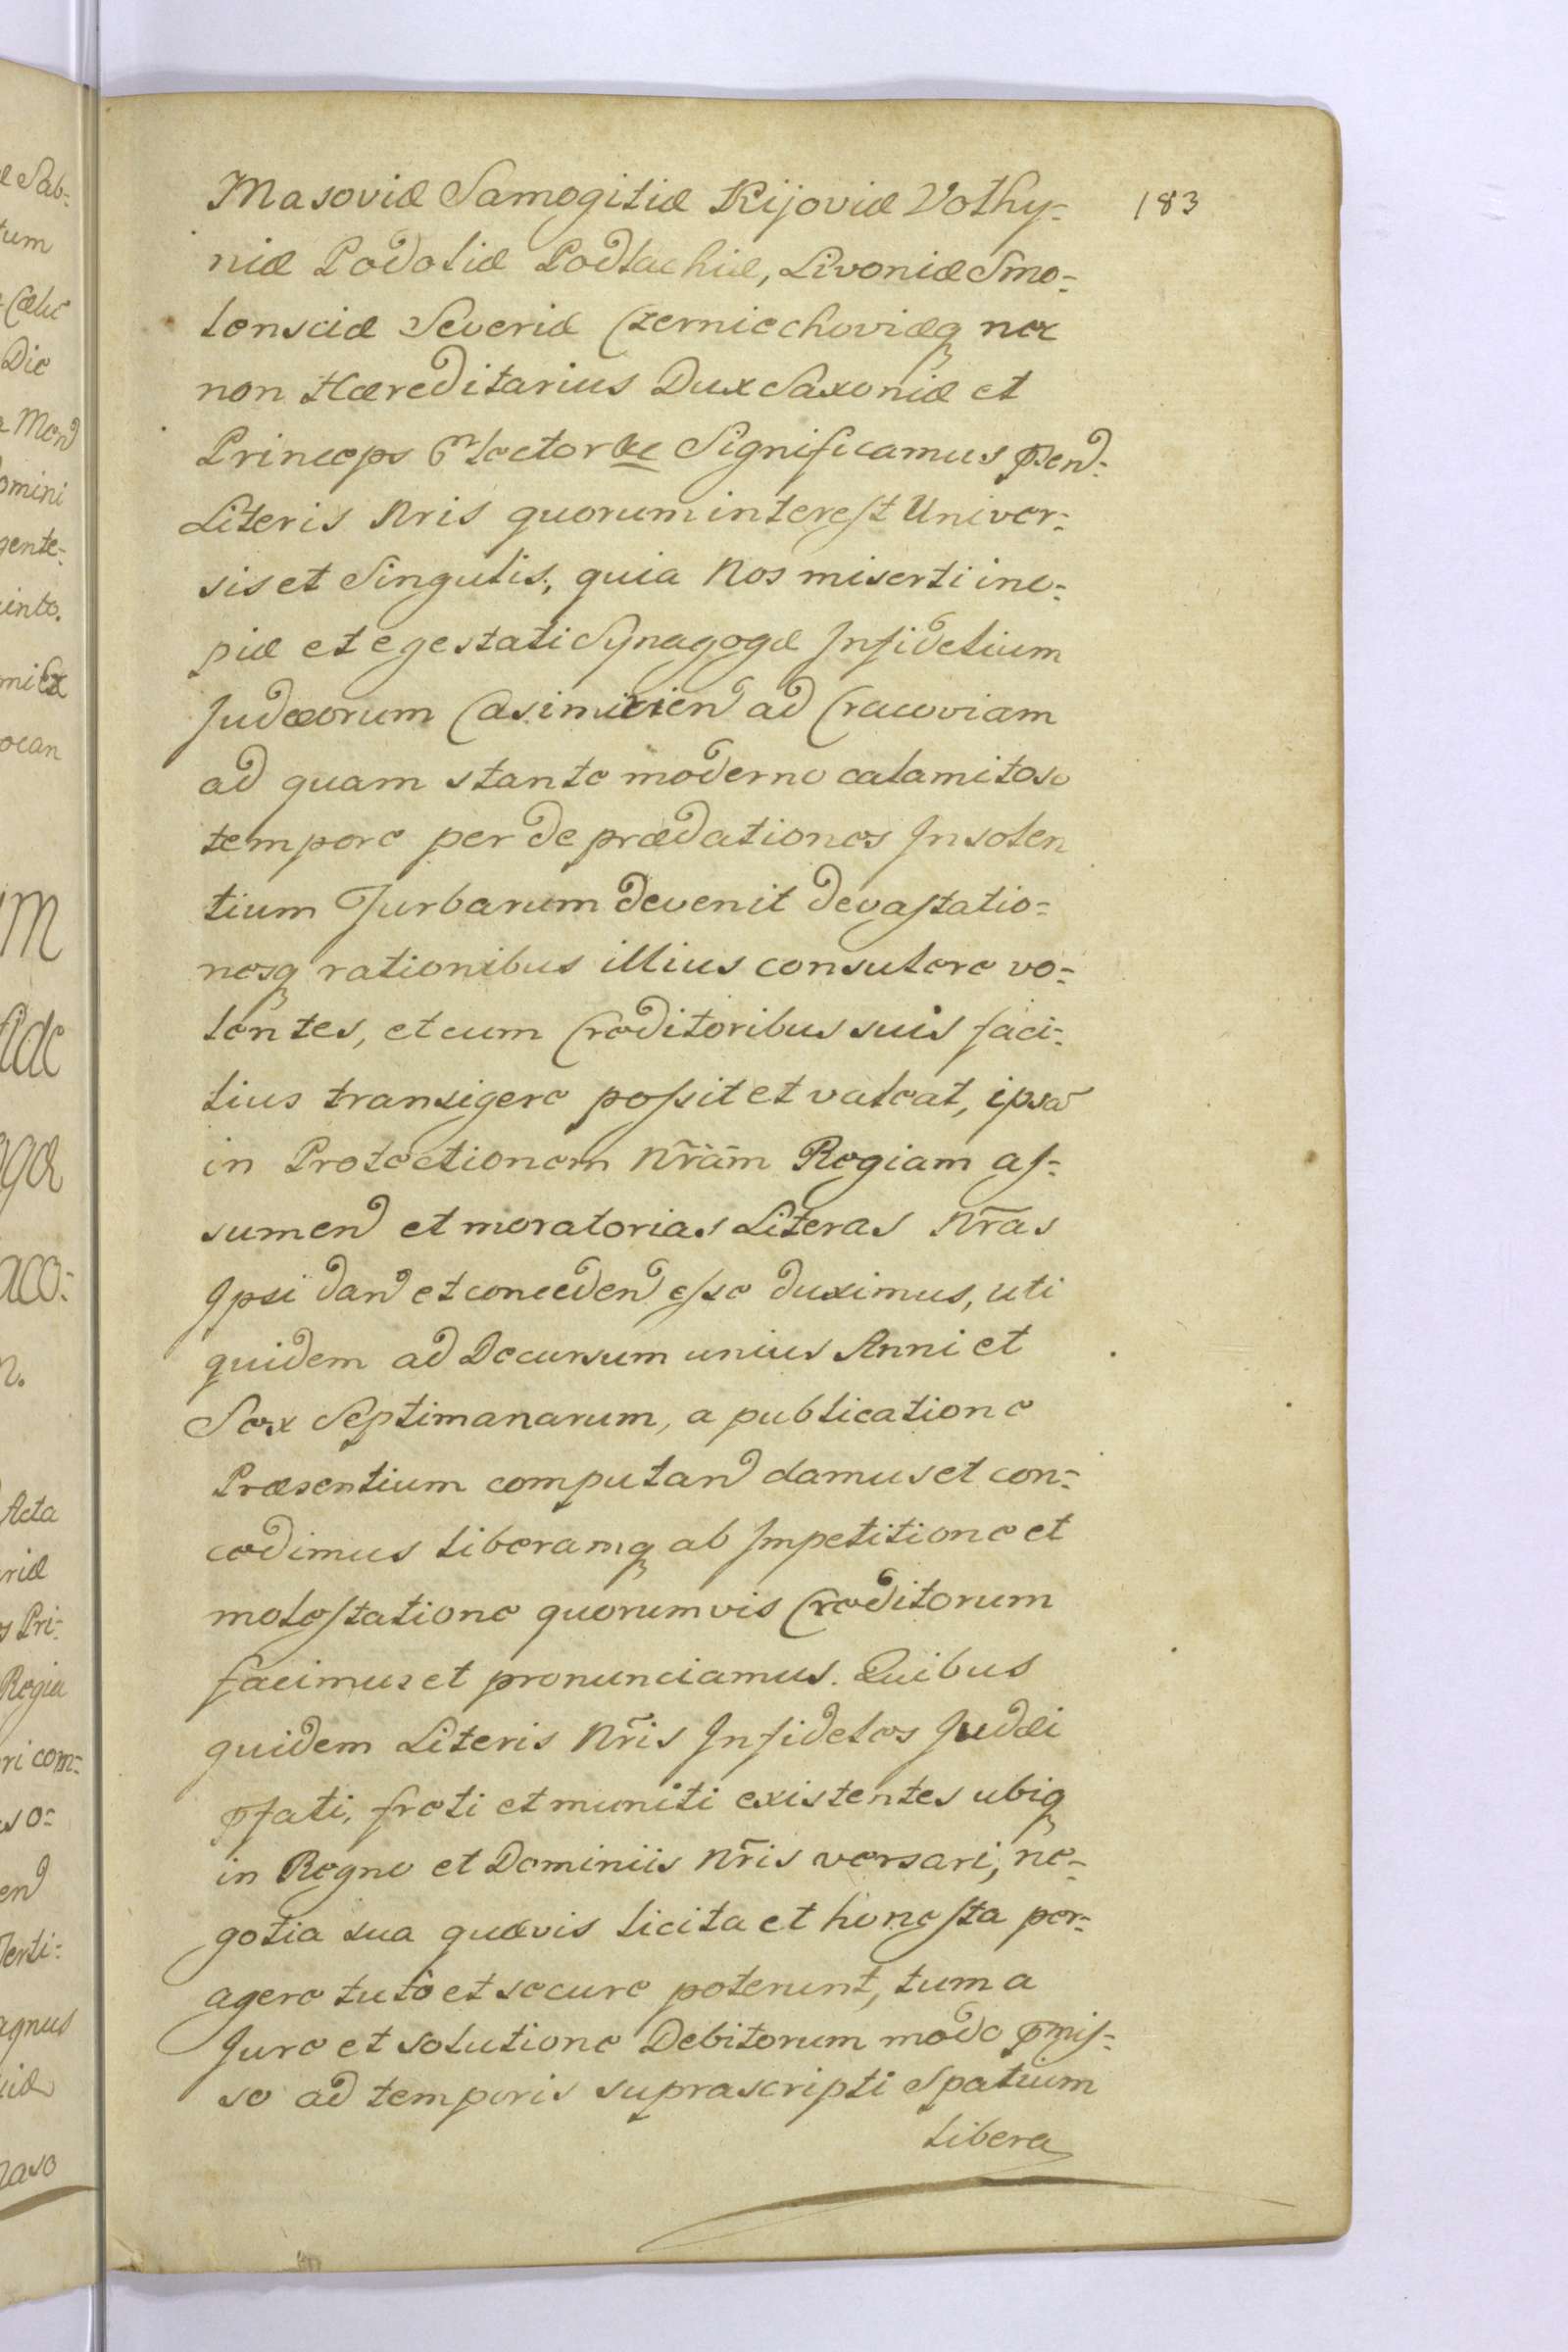 Masoviæ Samogitiæ Kijoviæ Volhy-
183
niæ Podoliæ Podlachiæ, Livoniæ Smo-
lensciæ Severiæ Czerniechoviæq nec
non Hæreditarius Dux Saxoniæ et
Princeps Elector &c Significamus p̄sen:
Literis Nris quorum interest Univer-
sis et Singulis, quia Nos miserti ino-
piæ et egestati Synagogæ Infidelium
Judæorum Casimirien ad Cracoviam
ad quam stante moderno calamitoso
tempore per deprædationes Insolen
tium Turbarum devenit devastatio-
nesq rationibus illius consulere vo-
lentes, et cum Creditoribus suis faci-
lius transigere possit et valeat, ipsã
in Protectionem Nr̃am Regiam as-
sumen et moratorias Literas Nr̃as
Ipsi dan et conceden esse duximus, uti
quidem ad Decursum unius Anni et
Sex Septimanarum, a publicatione
Præsentium computan damus et con-
cedimus liberamq ab Impetitione et
molestatione quorumvis Creditorum
facimus et pronunciamus. Quibus
quidem Literis Nr̃is Infideles Judæi
p̄fati, freti et muniti existentes ubiq
in Regno et Dominiis Nr̃is versari, ne-
gotia sua quævis licita et honesta per-
agere tutò et secure poterunt, tum a
Jure et solutione Debitorum modo p̄mis-
so ad temporis suprascripti Spatium
libera